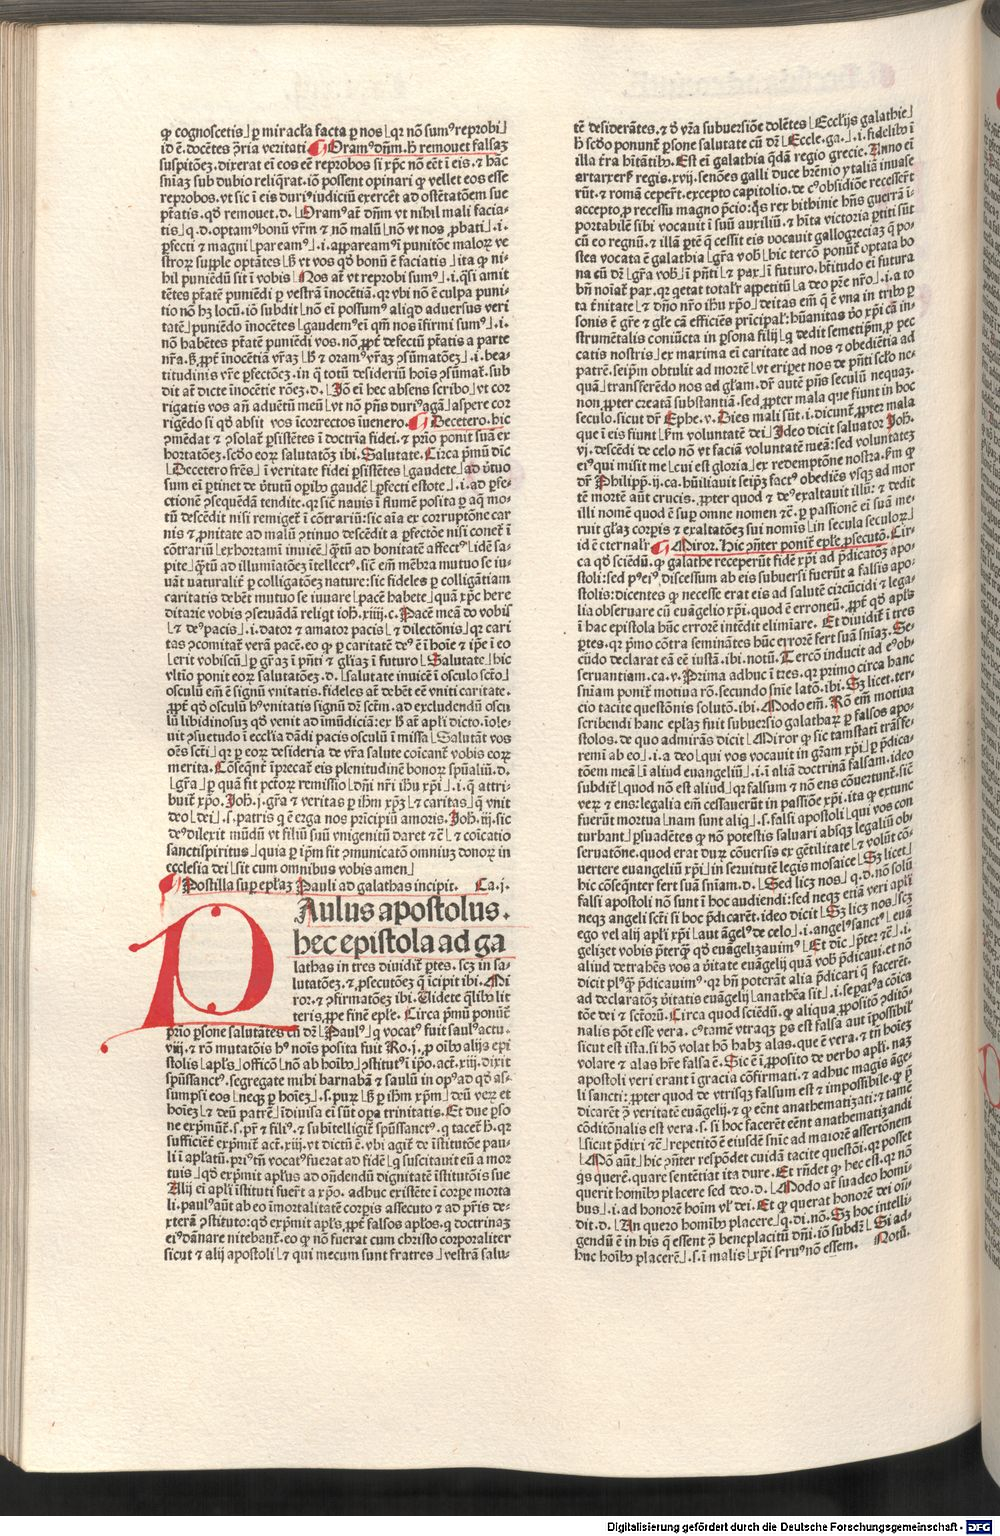 ꝙ cognoscetis ⌋ ꝑ miracła facta ꝑ nos ⌊ qꝛ nō sumꝰ reprobi ⌋
id ē. docētes ꝯ̄ria veritati ¶ Oramꝰ dn̄m. h̄ remouet falsaꝫ
suspitōeꝫ. dixerat ei eos eē reprobos si xp̄c nō eēt ī eis. ⁊ hāc
sn̄iaꝫ sub dubio reliq̄rat. iō possent opinari ꝙ vellet eos esse
reprobos. vt sic ī eis duriꝰ iudiciū exercēt ad ostētatōem sue
ptatis. qd̄ remouet. d. ⌊ Oramꝰ at̄ dn̄m vt nihil mali facia-
tis ⌋ q. d. optamꝰ bonū vr̄m ⁊ nō malū ⌊ nō vt nos ꝓbati ⌋ .i.
ꝑfecti ⁊ magni ⌊ pareamꝰ ⌋ .i. appareamꝰ ī punitōe maloꝝ ve
stroꝝ supple optātes ⌊ s̄ vt vos qd̄ bonū ē faciatis ⌋ ita ꝙ ni-
hil puniēdū sit ī vobis ⌊ Nos at̄ vt reprobi sumꝰ ⌋ .i. q̄si amit
tētes ptāte puniēdi ꝑ vestrā inocētiā. qꝛ vbi nō ē culpa puni-
tio nō hꝫ locū. iō subdit ⌊ nō ei possumꝰ aliqd aduersus veri
tatē ⌋ puniēdo inocētes ⌊ gaudemꝰ ei qm̄ nos īfirmi sumꝰ ⌋ .i.
nō habētes ptātē puniēdi vos. nō ꝓpt̄ defectū ptatis a parte
nr̄a. s̄ ꝓpt̄ inocētiā vr̄aꝫ ⌊ h̄ ⁊ oramꝰ vr̄aꝫ ꝯsūmatōeꝫ ⌋ .i. bea-
titudinis vr̄e ꝑfectōeꝫ. in q̄ totū desideriū hoīs ꝯsūmat᷑. sub
dit at̄ dicte inocētie rōeꝫ. d. ⌊ Jō ei hec absens scribo ⌋ vt cor
rigatis vos an̄ aduētū meū ⌊ vt nō pn̄s duriꝰ agā ⌋ aspere cor
rigēdo si qd̄ absit vos īcorrectos īuenero. ¶ Decetero. hic
ꝯmēdat ⁊ ꝯsolat᷑ ꝑsistētes ī doctrīa fidei. ⁊ prīo ponit suā ex
hortatōeꝫ. scd̄o eoꝝ salutatōꝫ ibi. Salutate. Circa pmū dic̄
⌊ Decetero fr̄es ⌋ ī veritate fidei ꝑsistētes ⌊ gaudete ⌋ ad v̄tuo
sum ei ꝑtinet de v̄tutū oꝑibꝰ gaudē ⌊ ꝑfecti estote ⌋ .i. ad ꝑfe-
ctionē ꝯsequēdā tendite. qꝛ sic̄ nauis ī flumē posita ꝑ aq̄ mo-
tū descēdit nisi remiget᷑ ī cōtrariū: sic aīa ex corruptōne car
nis ⁊ ꝓnitate ad malū ꝯtinuo descēdit a ꝑfectōe nisi conet᷑ ī
cōtrariū ⌊ exhortami inuicē ⌋ q̄tū ad bonitatē affectꝰ ⌊ idē sa-
pite ⌋ q̄tū ad illumīatōeꝫ ītellectꝰ. sic̄ em̄ mēbra mutuo se iu-
uāt naturalit᷑ ꝑ colligatōeꝫ nature: sic fideles ꝑ colligatiam
caritatis debēt mutuo se iuuare ⌊ pacē habete ⌋ quā xp̄c here
ditarie vobis ꝯseruādā reliqt ioh̄. xiiij. c. Pacē meā do vobis
⌊ ⁊ deꝰ pacis ⌋ .i. dator ⁊ amator pacis ⌊ ⁊ dilectōnis ⌋ qꝛ cari
tas ꝯcomitat᷑ verā pacē. eo ꝙ ꝑ caritatē deꝰ ē ī hoīe ⁊ ip̄e ī eo
⌊ erit vobiscū ⌋ ꝑ gr̄aꝫ ī pn̄ti ⁊ gl̄iaꝫ ī futuro ⌊ Salutate ⌋ hic
vltīo ponit eoꝝ salutatōeꝫ. d. ⌊ salutate inuicē ī osculo scto ⌋
osculū em̄ ē signū vnitatis. fideles at̄ debēt eē vniti caritate.
ꝓpt̄ qd̄ osculū hꝰ vnitatis signū dr̄ sctm̄. ad excludendū oscu
lū libidinosuꝫ qd̄ venit ad īmūdiciā: ex h̄ at̄ apl̄i dicto. iole-
uit ꝯsuetudo ī eccl̄ia dādi pacis osculū ī missa ⌊ Salutāt vos
oēs scti ⌋ qꝛ ꝑ eoꝝ desideria de vr̄a salute coīcant᷑ vobis eoꝝ
merita. Cōseqn̄t᷑ īprecat᷑ eis plenitudinē bonoꝝ spūaliū. d.
⌊ gr̄a ⌋ ꝑ quā fit pctoꝝ remissio ⌊ dn̄i nr̄i ihu xp̄i ⌋ .i. q̄ attri-
buit᷑ xp̄o. Joh̄. j. gr̄a ⁊ veritas ꝑ ihm̄ xp̄ꝫ ⌊ ⁊ caritas ⌋ q̄ vnit
deo ⌊ dei ⌋ .s. patris q̄ ē erga nos prīcipiū amoris. Joh̄. iij. sic
deꝰ dilexit mūdū vt filiū suū vnigenitū daret ⁊c̄ ⌊ ⁊ coīcatio
sanctispiritus ⌋ quia ꝑ ip̄m fit ꝯmunicatō omniuꝫ donoꝝ in
ecclesia dei ⌊ sit cum omnibus vobis amen ⌋
¶ Postilla suꝑ epl̄aꝫ Pauli ad galathas incipit. Ca. j.
PAulus apostolus.
hec epistola ad ga
lathas in tres diuidit᷑ ꝑtes. scꝫ in sa-
lutatōeꝫ. ⁊ ꝓsecutōeꝫ q̄ īcipit ibi. Mi
roꝛ. ⁊ ꝯfirmatōeꝫ ibi. Videte q̄libꝰ lit
teris, ꝓpe finē epl̄e. Circa pmū ponūt᷑
prīo ꝑsone salutātes cū dꝫ ⌊ Paulꝰ ⌋ q̄ vocatꝰ fuit saulꝰ actu.
viij. ⁊ rō mutatōis hꝰ noīs posita fuit Ro. j. ꝓ oībꝰ alijs epi
stolis ⌊ apl̄s ⌋ officō ⌊ nō ab hoībꝰ ⌋ ꝯstitutꝰ ī ip̄o. act᷑. xiij. dixit
spūssanctꝰ. segregate mihi barnabā ⁊ saulū in opꝰ ad qd̄ as-
sumpsi eos ⌊ neqꝫ ꝑ hoīeꝫ ⌋ .s. puꝝ ⌊ s̄ ꝑ ihm̄ xp̄m ⌋ deū veꝝ et
hoīeꝫ ⌊ ⁊ deū patrē ⌋ īdiuisa ei sūt oꝑa trinitatis. Et due ꝑso
ne exp̄mūt᷑. s. pr̄ ⁊ filiꝰ. ⁊ subītelligit᷑ spūssanctꝰ. q̄ tacet᷑ h̄. qꝛ
sufficiēt᷑ exp̄mit᷑ act᷑. xiij. vt dictū ē. vbi agit᷑ de īstitutōe pau-
li ī apl̄atū. priꝰ tn̄ vocatꝰ fuerat ad fidē ⌊ q̄ suscitauit eū a mor
tuis ⌋ qd̄ exp̄mit apl̄us ad on̄dendū dignitatē īstitutōis sue
Alij ei apl̄i īstituti fuer̄t a xp̄o. adhuc existēte ī corpe morta
li. paulꝰ aūt ab eo īmortalitatē corpis assecuto ⁊ ad pr̄is de-
xterā ꝯstituto: qd̄ exp̄mit apl̄s, ꝓpt̄ falsos apl̄os. q̄ doctrinaꝫ
eiꝰ dānare nitebant᷑. eo ꝙ nō fuerat cum christo corporaliter
sicut ⁊ alij apostoli ⌊ ⁊ qui mecum sunt fratres ⌋ vestrā salu-
tē desiderātes. ⁊ d̄ vr̄a subuersiōe dolētes ⌊ Ecclijs galathie ⌋
h̄ scd̄o ponunt᷑ ꝑsone salutate cū dꝫ ⌊ Eccle. ga. ⌋ .i. fidelibꝰ ī
illa tr̄a hītātibꝰ. Est ei galathia qdā regio grecie. Anno ei
artarxerꝰ regis. xvij. senōes galli duce brēnio ytaliā inuase
rūt. ⁊ romā ceper̄t. excepto capitolio. de cꝰ obsidiōe recesser̄t
accepto, ꝓ recessu magno p̄cio: q̄s rex bithinie hn̄s guerrā ī-
portabilē sibi vocauit ī suū auxiliū. ⁊ hīta victoria ꝑtiti sūt
cū eo regnū. ⁊ illā ꝑtē q̄ cessit eis vocauit gallogreciaꝫ q̄ po-
stea vocata ē galathia ⌊ gr̄a vob̄ ⌋ hic tercō ponūt᷑ optata bo
na cū dꝫ ⌊ gr̄a vob̄ ⌋ ī pn̄ti ⌊ ⁊ pax ⌋ ī futuro. bt̄itudo ei futura
bn̄ noīat᷑ pax. qꝛ qetat totalr̄ appetitū ⌊ a deo pr̄e nr̄o ⌋ .i. a to
ta trīnitate ⌊ ⁊ dn̄o nr̄o ihu xp̄o ⌋ deitas em̄ q̄ ē vna in tribꝰ ꝑ
sonis ē gr̄e ⁊ gl̄e cā efficiēs prīcipal᷑: hūanitas v̄o xp̄i cā in-
strumētalis coniūcta in ꝑsona filij ⌊ q̄ dedit semetip̄m, ꝓ pec
catis nostris ⌋ ex maxima ei caritate ad nos ⁊ obediētia ad
patrē. seip̄m obtulit ad mortē ⌊ vt eriꝑet nos de pn̄ti sclō ne-
quā ⌋ transferēdo nos ad gl̄am. dr̄ autē pn̄s seculū nequaꝫ.
non ꝓpter creatā substantiā. sed, ꝓpter mala que fiunt in hoc
seculo. sicut dr̄ Ephe. v. Dies mali sūt. i. dicunt᷑, ꝓpter mala
que ī eis fiunt ⌊ ẜm voluntatē dei ⌋ Ideo dicit saluator Joh̄.
vj. descēdi de celo nō vt faciā voluntatē meā: sed voluntateꝫ
eiꝰ qui misit me ⌊ cui est gloria ⌋ ex redemptōne nostra. ẜm ꝙ
dr̄ Philip̄p. ij. ca. hūiliauit seip̄ꝫ factꝰ obediēs vsqꝫ ad mor
tē mortē aūt crucis. ꝓpter quod ⁊ deꝰ exaltauit illū: ⁊ dedit
illi nomē quod ē suꝑ omne nomen ⁊c̄. ꝑ passionē ei suā me-
ruit gl̄aꝫ corpis ⁊ exaltatōeꝫ sui nomīs ⌊ in secula seculoꝝ ⌋
id ē eternalr̄ ¶ Miror. Hic ꝯn̄ter ponit᷑ epl̄e, ꝓsecutō. Cir-
ca qd̄ sciēdū. ꝙ galathe receperūt fidē xp̄i ad p̄dicatōꝫ apo-
stoli: sed pꝰ eiꝰ discessum ab eis subuersi fuerūt a falsis apo-
stolis: dicentes ꝙ necesse erat eis ad salutē circūcidi ⁊ lega-
lia obseruare cū euāgelio xp̄i. quod ē erroneū. ꝓpt̄ qd̄ apl̄s
ī hac epistola hūc errorē intēdit elimīare. Et diuidit᷑ ī tres
ꝑtes. qꝛ pmo cōtra seminātes hūc errorē fert suā sn̄iaꝫ. Se-
cūdo declarat eā eē iustā. ibi. notū. Tercō inducit ad eꝰ ob-
seruantiam. ca. v. Prima adhuc ī tres. qꝛ primo circa hanc
sn̄iam ponit᷑ motiua rō. secundo sn̄ie latō. ibi. Sꝫ licet. ter-
cio tacite questōnis solutō. ibi. Modo em̄. Rō em̄ motiua
scribendi hanc epl̄aꝫ fuit subuersio galathaꝝ ꝑ falsos apo-
stolos. de quo admirās dicit ⌊ Miror ꝙ sic tam ꝫstati trāsfe-
remī ab eo ⌋ .i. a deo ⌊ qui vos vocauit in gr̄am xp̄i ⌋ ꝑ p̄dica-
tōem meā ⌊ ī aliud euangeliū ⌋ .i. ī aliā doctrinā falsam. ideo
subdit᷑ ⌊ quod nō est aliud ⌋ qꝛ falsum ⁊ nō ens cōuertunt᷑. sic̄
veꝝ ⁊ ens: legalia em̄ cessauerūt in passiōe xp̄i. ita ꝙ extunc
fuerūt mortua ⌊ nam sunt aliq̄ ⌋ .s. falsi apostoli ⌊ qui vos con
turbant ⌋ ꝑsuadētes ꝙ nō potestis saluari absqꝫ legaliū ob-
seruatōne. quod erat duꝝ cōuersis ex gētilitate ⌊ ⁊ volūt cō-
uertere euangeliū xp̄i ⌋ in seruitutē legis mosaice ⌊ Sꝫ licet ⌋
hic cōseqn̄ter fert suā sn̄iam. d. ⌊ Sed licꝫ nos ⌋ q. d. nō solū
falsi apostoli nō sunt ī hoc audiendi: sed neqꝫ etiā veri apl̄i
neqꝫ angeli scti si hoc p̄dicarēt. ideo dicit ⌊ Sꝫ licꝫ nos ⌋ scꝫ
ego vel alij apl̄i xp̄i ⌊ aut āgelꝰ de celo ⌋ .i. angelꝰ sanctꝰ ⌊ euā
gelizet vobis p̄terꝙ qd̄ euāgelizauimꝰ ⌊ Et dic̄ ⌋ p̄ter ⁊c̄ ⌋ .i.
aliud detrahēs vos a v̄itate euāgelij quā vob̄ p̄dicaui. et nō
dicit plꝰ q̄ p̄dicauimꝰ. qꝛ bn̄ poterāt alia p̄dicari q̄ facerēt.
ad declaratōꝫ v̄itatis euāgelij ⌊ anathēa sit ⌋ .i. sepatꝰ a cōica
tōe dei ⁊ sctoꝝ. Circa quod sciēdū. ꝙ aliqua, ꝓpositō ꝯditō-
nalis pōt esse vera. cꝰ tamē vtraqꝫ ꝑs est falsa aut īpossibil᷑
sicut est ista. si hō volat hō habꝫ alas. que ē vera. ⁊ tn̄ hoīeꝫ
volare ⁊ alas hr̄e falsa ē. Sic ē ī, ꝓposito de verbo apl̄i. naꝫ
apostoli veri erant ī gracia cōfirmati. ⁊ adhuc magis āge-
li sancti: ꝓpter quod de vtrisqꝫ falsum est ⁊ impossibile. ꝙ p̄
dicarēt ꝯ̄ veritatē euāgelij. ⁊ ꝙ eēnt anathematizati: ⁊ tamē
cōditōnalis est vera. s. si hoc facerēt eēnt anathematizandi
⌊ sicut p̄dixi ⁊c̄ ⌋ repetitō ē eiusdē sn̄ie ad maiorē assertōnem
⌊ Mō aūt ⌋ hic ꝯn̄ter respōdet cuidā tacite questōi. qꝛ posset
q̄s querē. quare sentētiat ita dure. Et rn̄det ꝙ hec est. qꝛ nō
querit homībꝰ placere sed deo. d. ⌊ Modo at̄ suadeo homi-
bus ⌋ .i. ad honorē hoīm vł dei. Et ꝙ querat honorē dei oñ-
dit. d. ⌊ An quero homībꝰ placere ⌋ q. di. nō. Sꝫ hoc intelli-
gendū ē in his q̄ essent ꝯ̄ beneplacitū dn̄i. iō subdꝫ ⌊ Si ad-
huc hoībꝰ placerē ⌋ .s. ī malis ⌊ xp̄i seruꝰ nō essem. Notū.
Digitalisierung gefördert durch die Deutsche Forschungsgemeinschaft - DFG